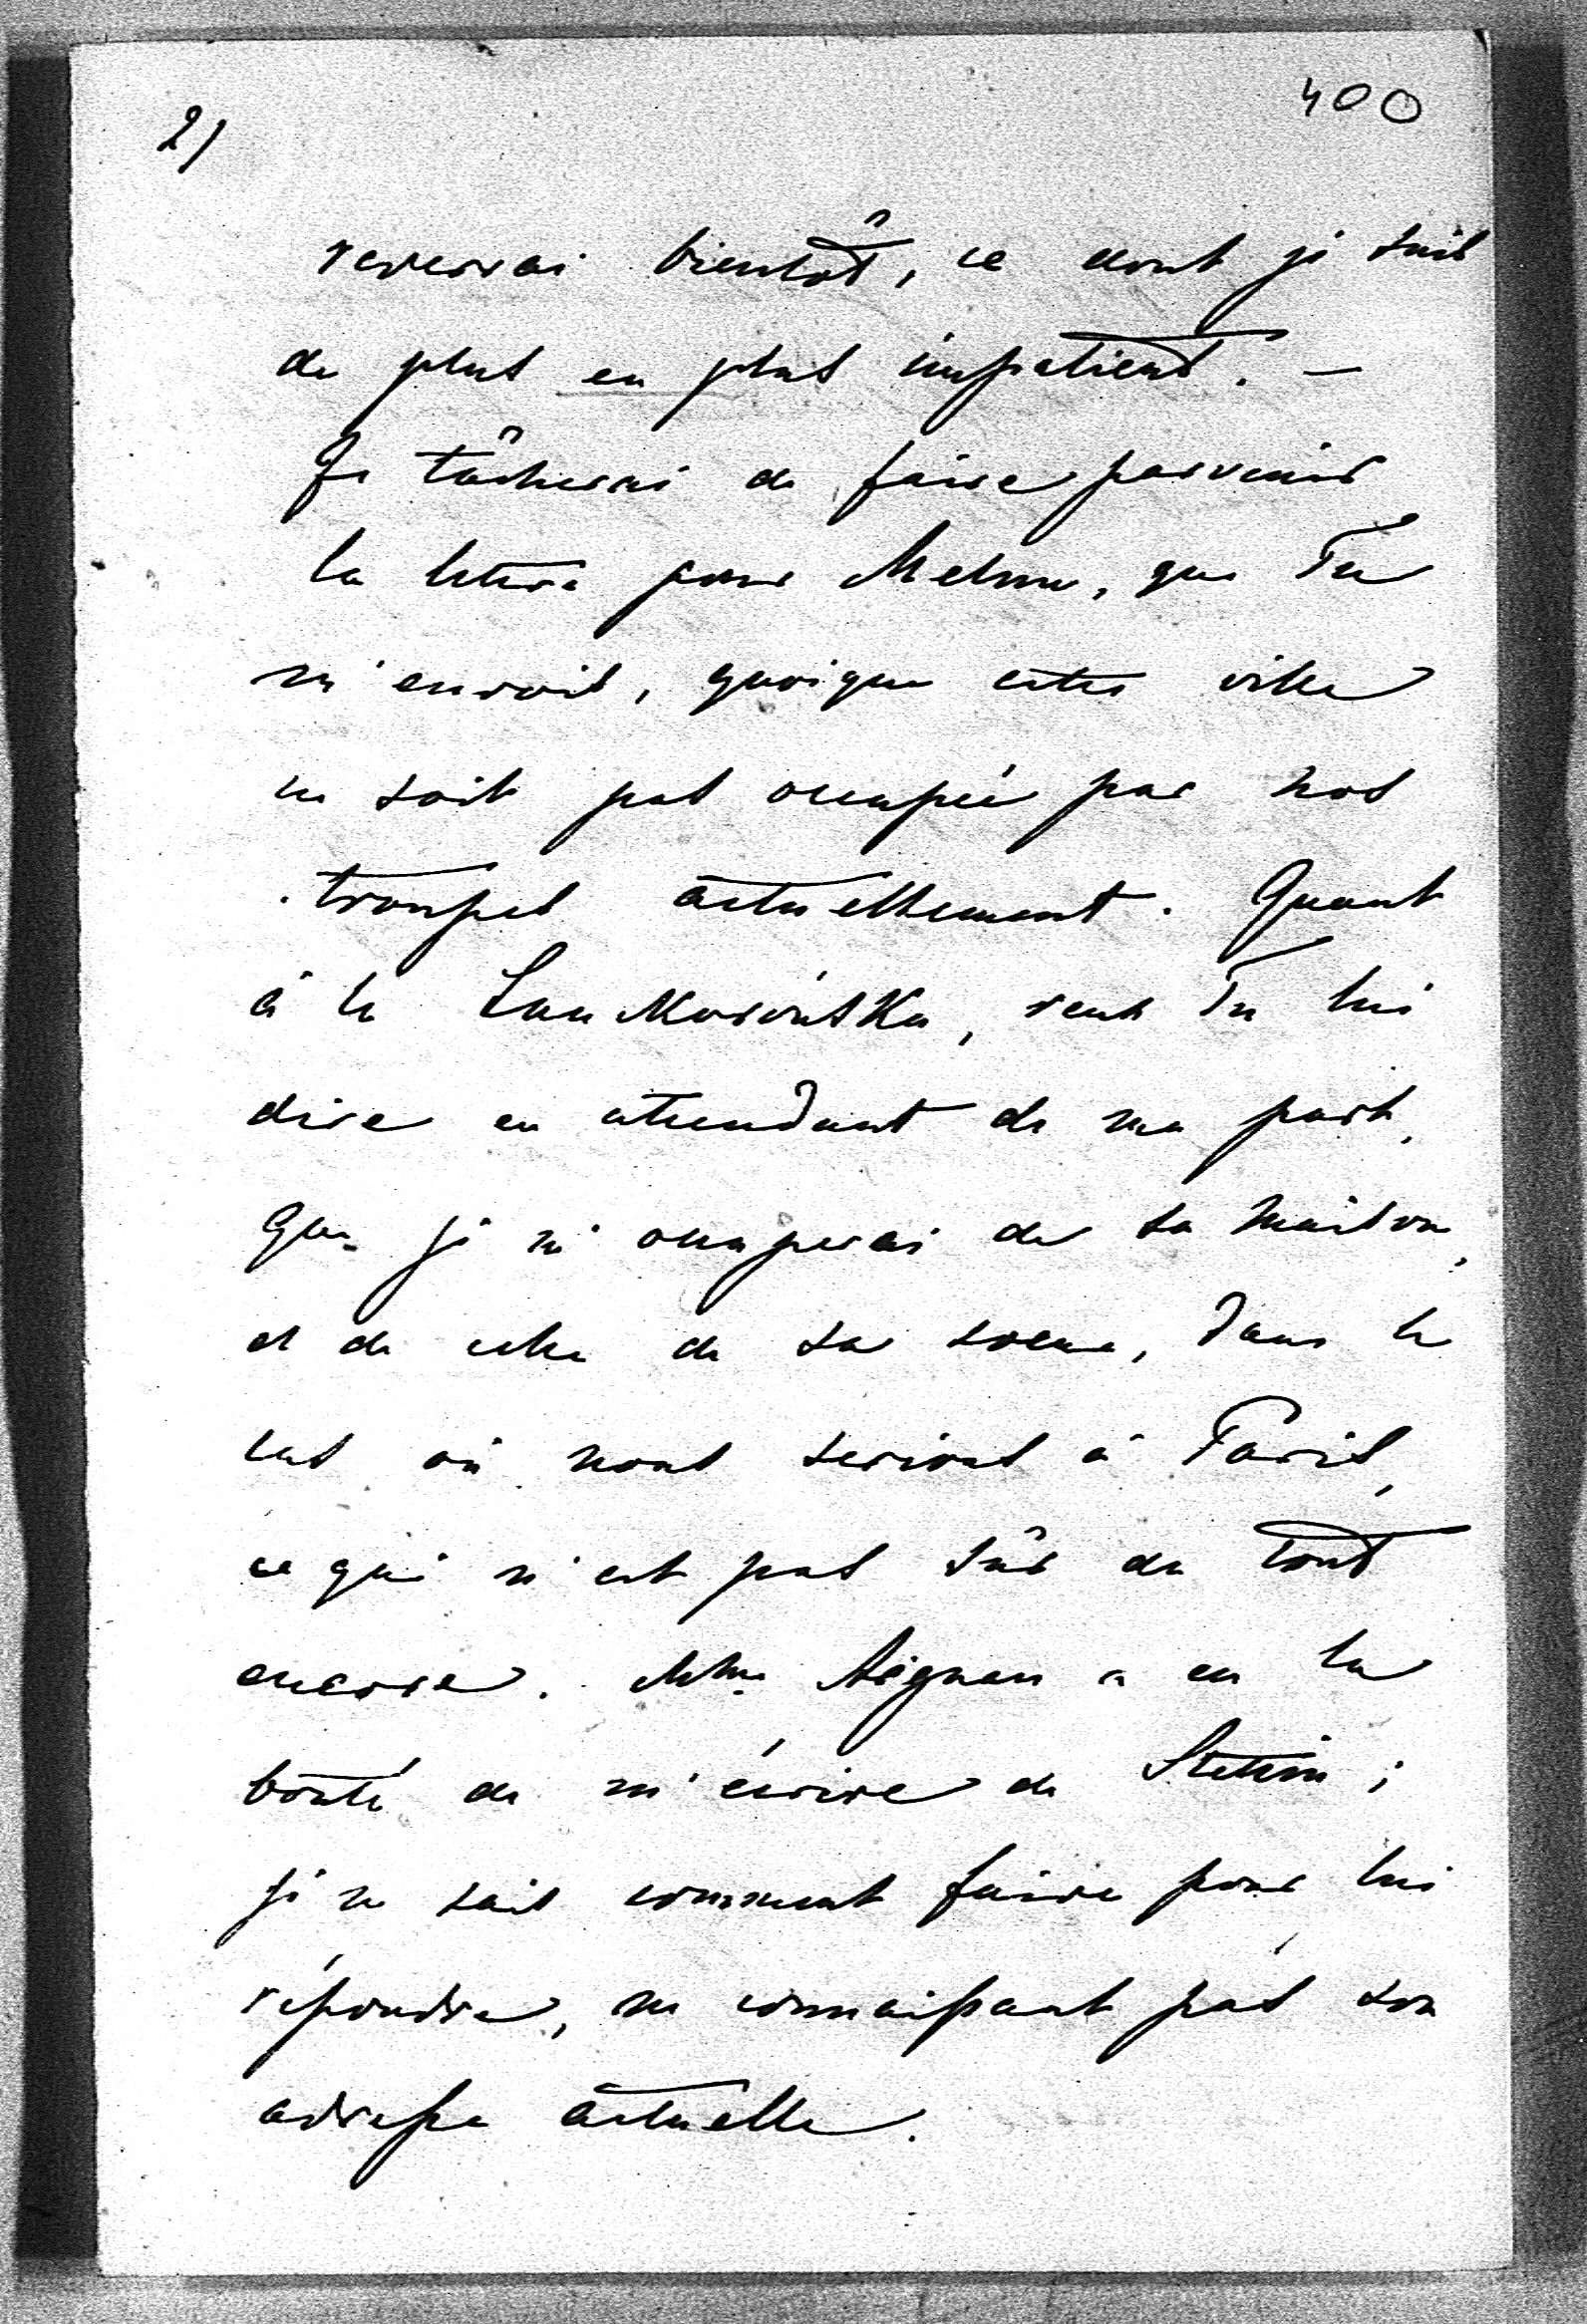 400
2)
reverrai bientôt, ce dont je suis
de plus en plus impatient. —
Je tâcherai de faire parvenir
la lettre pour Melun, que Tu
m'envois, quoique cette ville
ne soit pas occupée par nos
troupes actuellement. Quant
à la, veux Tu lui
dire en attendant de ma part,
que je m'occuperai de sa maison,
et de celle de sa soeur, dans le
cas où nous serions à Paris,
ce qui n'est pas sûr du tout
encore. Mme Aignan a eu la
bonté de m'écrire de Stettin;
je ne sais comment faire pour lui
répondre, ne connaissant pas son
adresse actuelle.